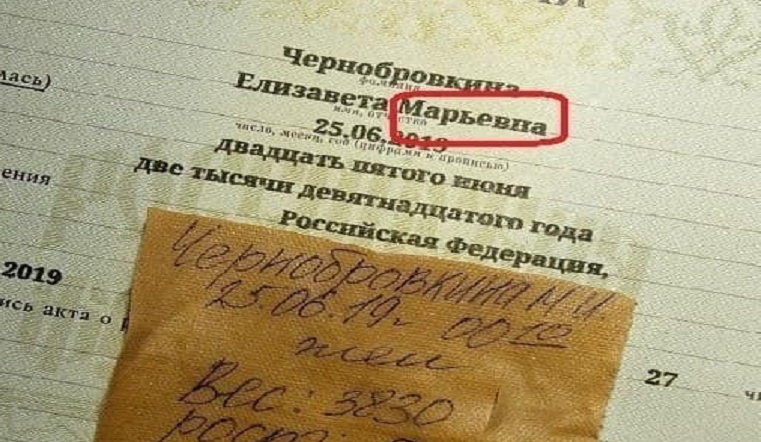 лась)
Чернобровкина
фамилия
Елизавета Марьевна
имя, отчество
25.06.2019
число, месяц, год (цифрами и прописью)
двадцать пятого июня
две тысячи девятнадцатого года
Российская Федерация,
ения
2019
ись акта о р
27
Чернобровкина М И
25.06.19г. 00 10
жен
Вес: 3830
рост: